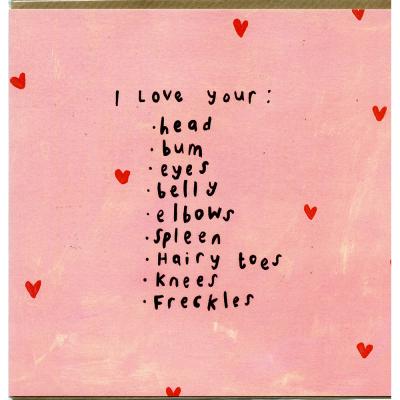 I Love your:
·head
·bum
·eyes
·belly
·elbows
·spleen
·Hairy toes
·Knees
·Freckles